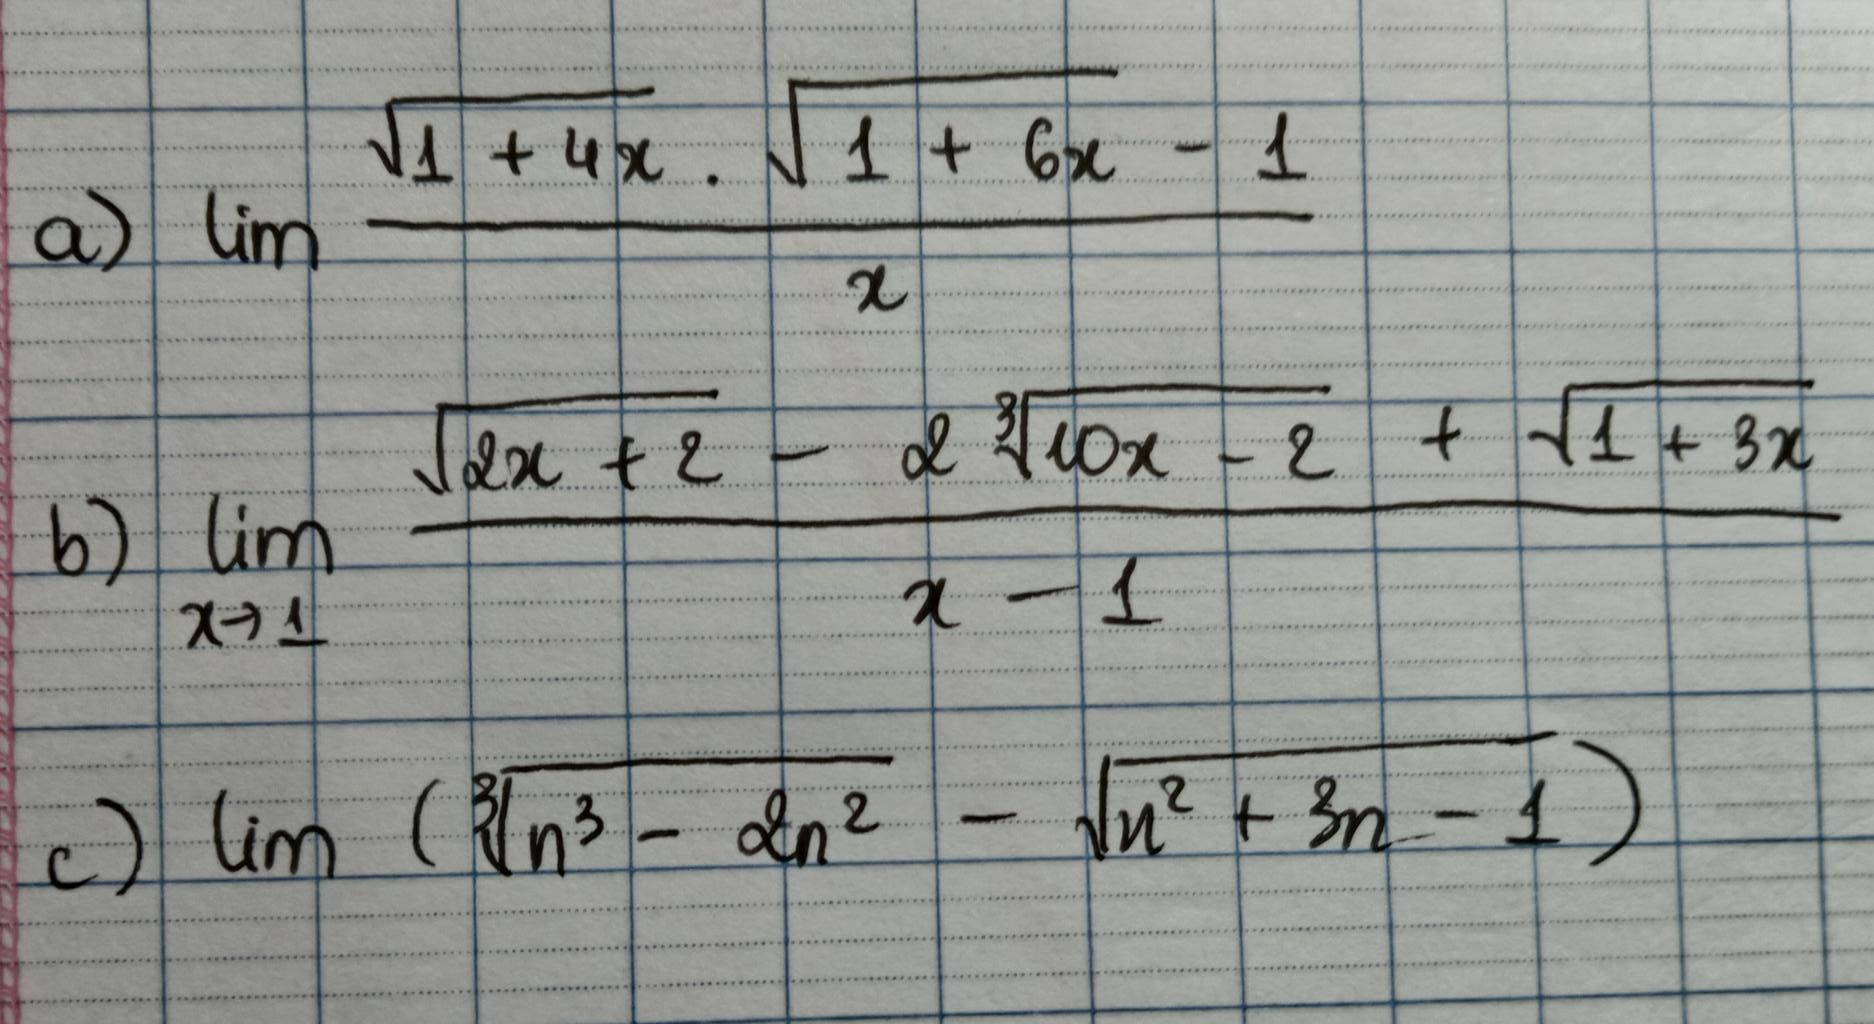 a) lim (√(1 + 4x) . √(1 + 6x) - 1) / x
b) lim x→1 (√(2x + 2) - 2 ∛(10x - 2) + √(1 + 3x)) / (x - 1)
c) lim (∛(n³ - 2n²) - √(n² + 3n - 1))